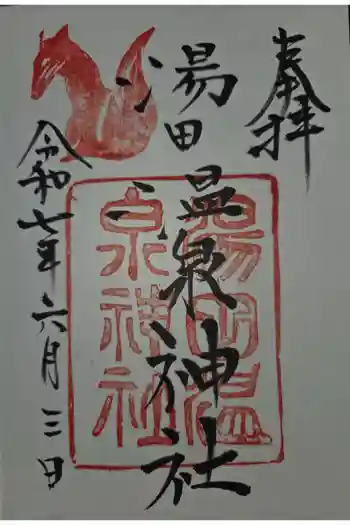 奉拝
湯田温泉神社
令和七年六月三日
湯田温
泉神社